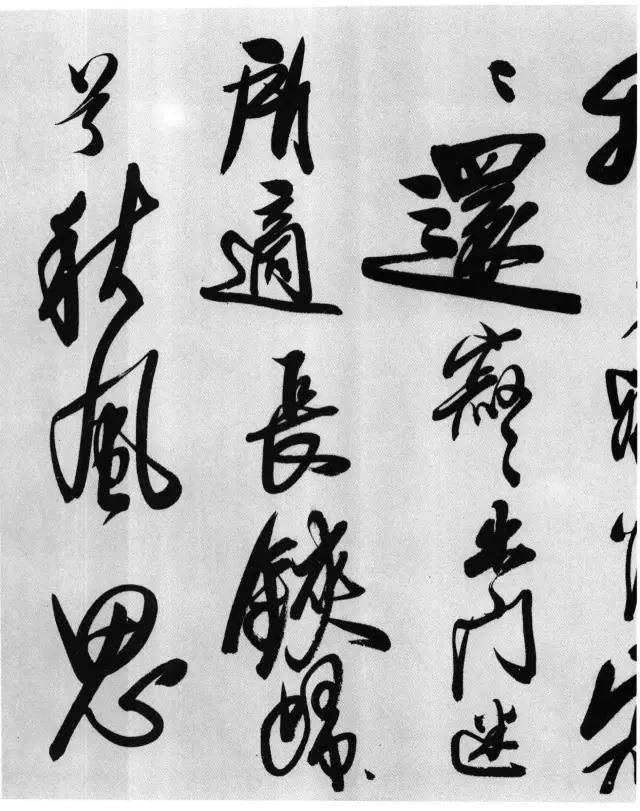 〻還寂〻出門迷
所適長鋏歸
兮秋風思